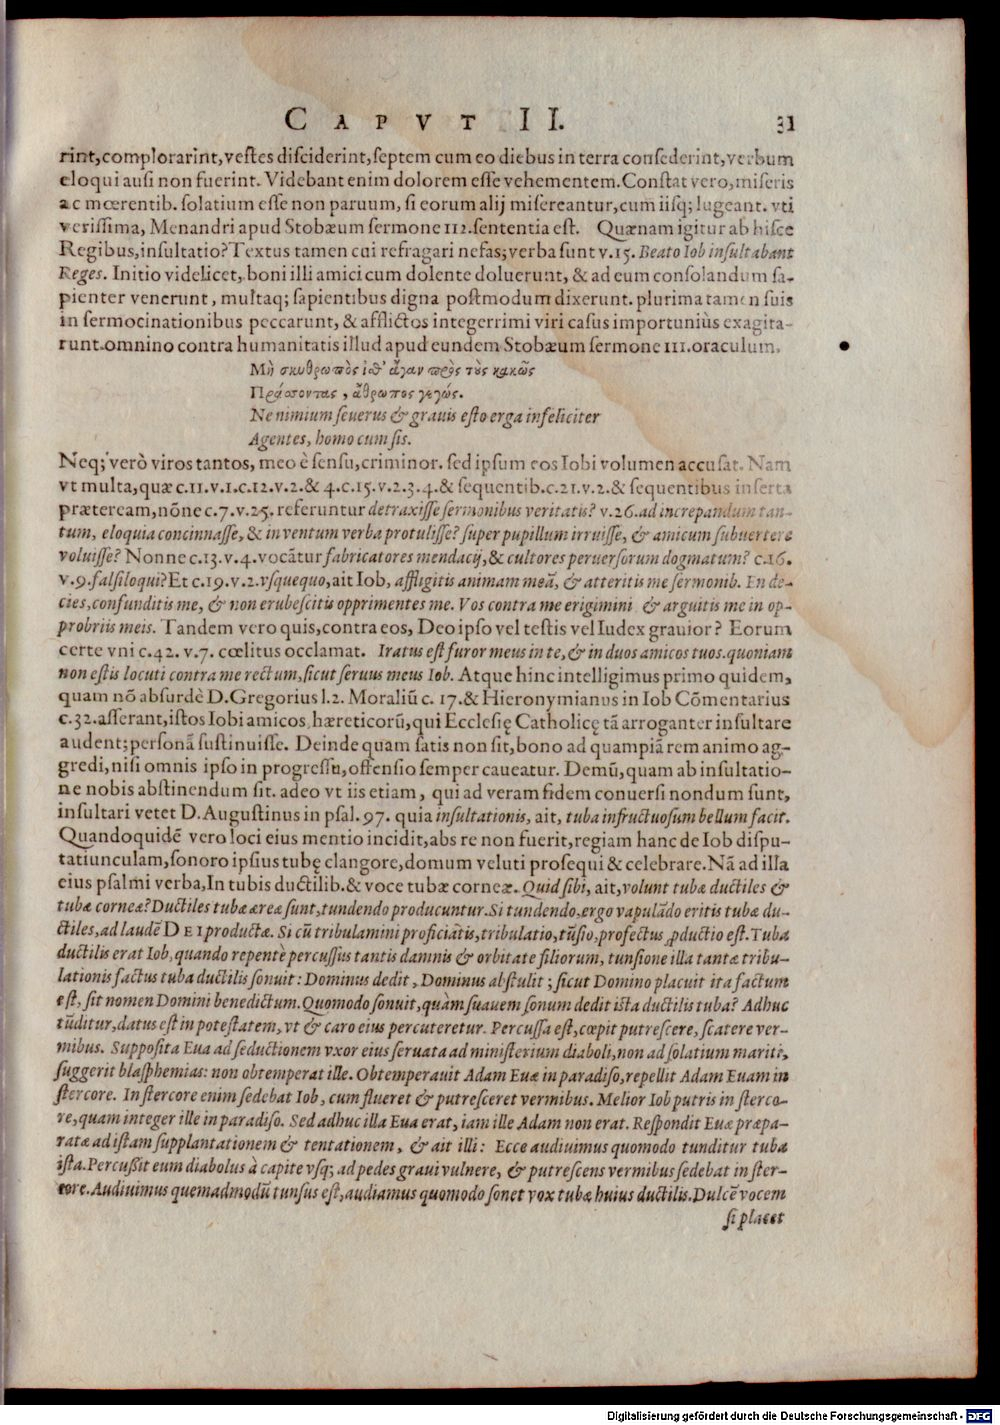 CAPVT II. 31
rint,complorarint,vestes disciderint,septem cum eo diebus in terra consederint,verbum
eloqui ausi non fuerint. Videbant enim dolorem esse vehementem. Constat vero,miseris
ac mœrentib. solatium esse non paruum, si eorum alij misereantur,cum iisq; lugeant. vti
verissima, Menandri apud Stobæum sermone III. sententia est. Quænam igitur ab hisce
Regibus,insultatio? Textus tamen cui refragari nefas; verba sunt v.15. Beato Iob insultabant
Reges. Initio videlicet, boni illi amici cum dolente doluerunt, & ad eum consolandum sa-
pienter venerunt, multaq; sapientibus digna postmodum dixerunt. plurima tamen suis
in sermocinationibus peccarunt, & afflictos integerrimi viri casus importuniùs exagita-
runt. omnino contra humanitatis illud apud eundem Stobæum sermone III. oraculum.
Μὴ σκυθρωπὸς ἴσθ' ἄγαν πρὸς τοὺς κακῶς
Πράσσοντας, ἄθρωπος γεγώς.
Ne nimium seuerus & grauis esto erga infeliciter
Agentes, homo cum sis.
Neq; verò viros tantos, meo è sensu, criminor. sed ipsum eos Iobi volumen accusat. Nam
vt multa, quæ c.11.v.1.c.12.v.2.& 4.c.15.v.2.3.4.& sequentib.c.21.v.2.& sequentibus inserta
præteream, nõne c.7.v.25. referuntur detraxisse sermonibus veritatis? v.26. ad increpandum tan-
tum, eloquia concinnasse, & in ventum verba protulisse? super pupillum irruisse, & amicum subuertere
voluisse? Nonne c.13. v.4. vocãtur fabricatores mendacij, & cultores peruersorum dogmatum? c.16.
v.9. falsiloqui? Et c.19. v.2. vsquequo, ait Iob, affligitis animam meã, & atteritis me sermonib. En de-
cies, confunditis me, & non erubescitis opprimentes me. Vos contra me erigimini & arguitis me in op-
probriis meis. Tandem vero quis, contra eos, Deo ipso vel testis vel Iudex grauior? Eorum
certe vni c.42. v.7. cœlitus occlamat. Iratus est furor meus in te, & in duos amicos tuos. quoniam
non estis locuti contra me rectum, sicut seruus meus Iob. Atque hinc intelligimus primo quidem,
quam nõ absurdè D. Gregorius l.2. Moraliũ c. 17. & Hieronymianus in Iob Cõmentarius
c.32. asserant, istos Iobi amicos, hæreticorũ, qui Ecclesię Catholicę tã arroganter insultare
audent; personã sustinuisse. Deinde quam satis non sit, bono ad quampiã rem animo ag-
gredi, nisi omnis ipso in progressu, offensio semper caueatur. Demũ, quam ab insultatio-
ne nobis abstinendum sit. adeo vt iis etiam, qui ad veram fidem conuersi nondum sunt,
insultari vetet D. Augustinus in psal. 97. quia insultationis, ait, tuba infructuosum bellum facit.
Quandoquidẽ vero loci eius mentio incidit, abs re non fuerit, regiam hanc de Iob dispu-
tatiunculam, sonoro ipsius tubę clangore, domum veluti prosequi & celebrare. Nã ad illa
eius psalmi verba, In tubis ductilib. & voce tubæ corneæ. Quid sibi, ait, volunt tubæ ductiles &
tubæ corneæ? Ductiles tubæ æreæ sunt, tundendo producuntur. Si tundendo, ergo vapulãdo eritis tubæ du-
ctiles, ad laudẽ DEI productæ. Si cũ tribulamini proficiatis, tribulatio, tũsio, profectus ꝓductio est. Tuba
ductilis erat Iob, quando repentè percussus tantis damnis & orbitate filiorum, tunsione illa tantæ tribu-
lationis factus tuba ductilis sonuit: Dominus dedit, Dominus abstulit; sicut Domino placuit ita factum
est, sit nomen Domini benedictum. Quomodo sonuit, quàm suauem sonum dedit ista ductilis tuba? Adhuc
tũditur, datus est in potestatem, vt & caro eius percuteretur. Percussa est, cœpit putrescere, scatere ver-
mibus. Supposita Eua ad seductionem vxor eius seruata ad ministerium diaboli, non ad solatium mariti,
suggerit blasphemias: non obtemperat ille. Obtemperauit Adam Euæ in paradiso, repellit Adam Euam in
stercore. In stercore enim sedebat Iob, cum flueret & putresceret vermibus. Melior Iob putris in sterco-
re, quam integer ille in paradiso. Sed adhuc illa Eua erat, iam ille Adam non erat. Respondit Euæ præpa-
ratæ ad istam supplantationem & tentationem, & ait illi: Ecce audiuimus quomodo tunditur tuba
ista. Percußit eum diabolus à capite vsq; ad pedes graui vulnere, & putrescens vermibus sedebat in ster-
core. Audiuimus quemadmodũ tunsus est, audiamus quomodo sonet vox tubæ huius ductilis. Dulcẽ vocem
si placet
Digitalisierung gefördert durch die Deutsche Forschungsgemeinschaft - DFG